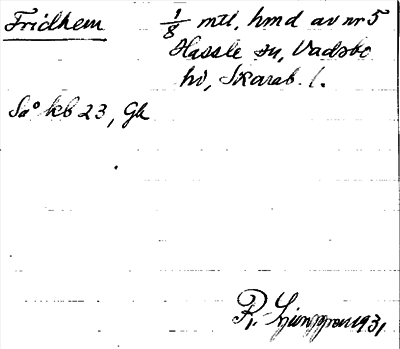 Fridhem 1/8 mtl, hmd av nr 5
Hassle sn, Vadsbo
hd, Skarab. l.
Sa° kb 23, Gk
R. Ljunggren 1931